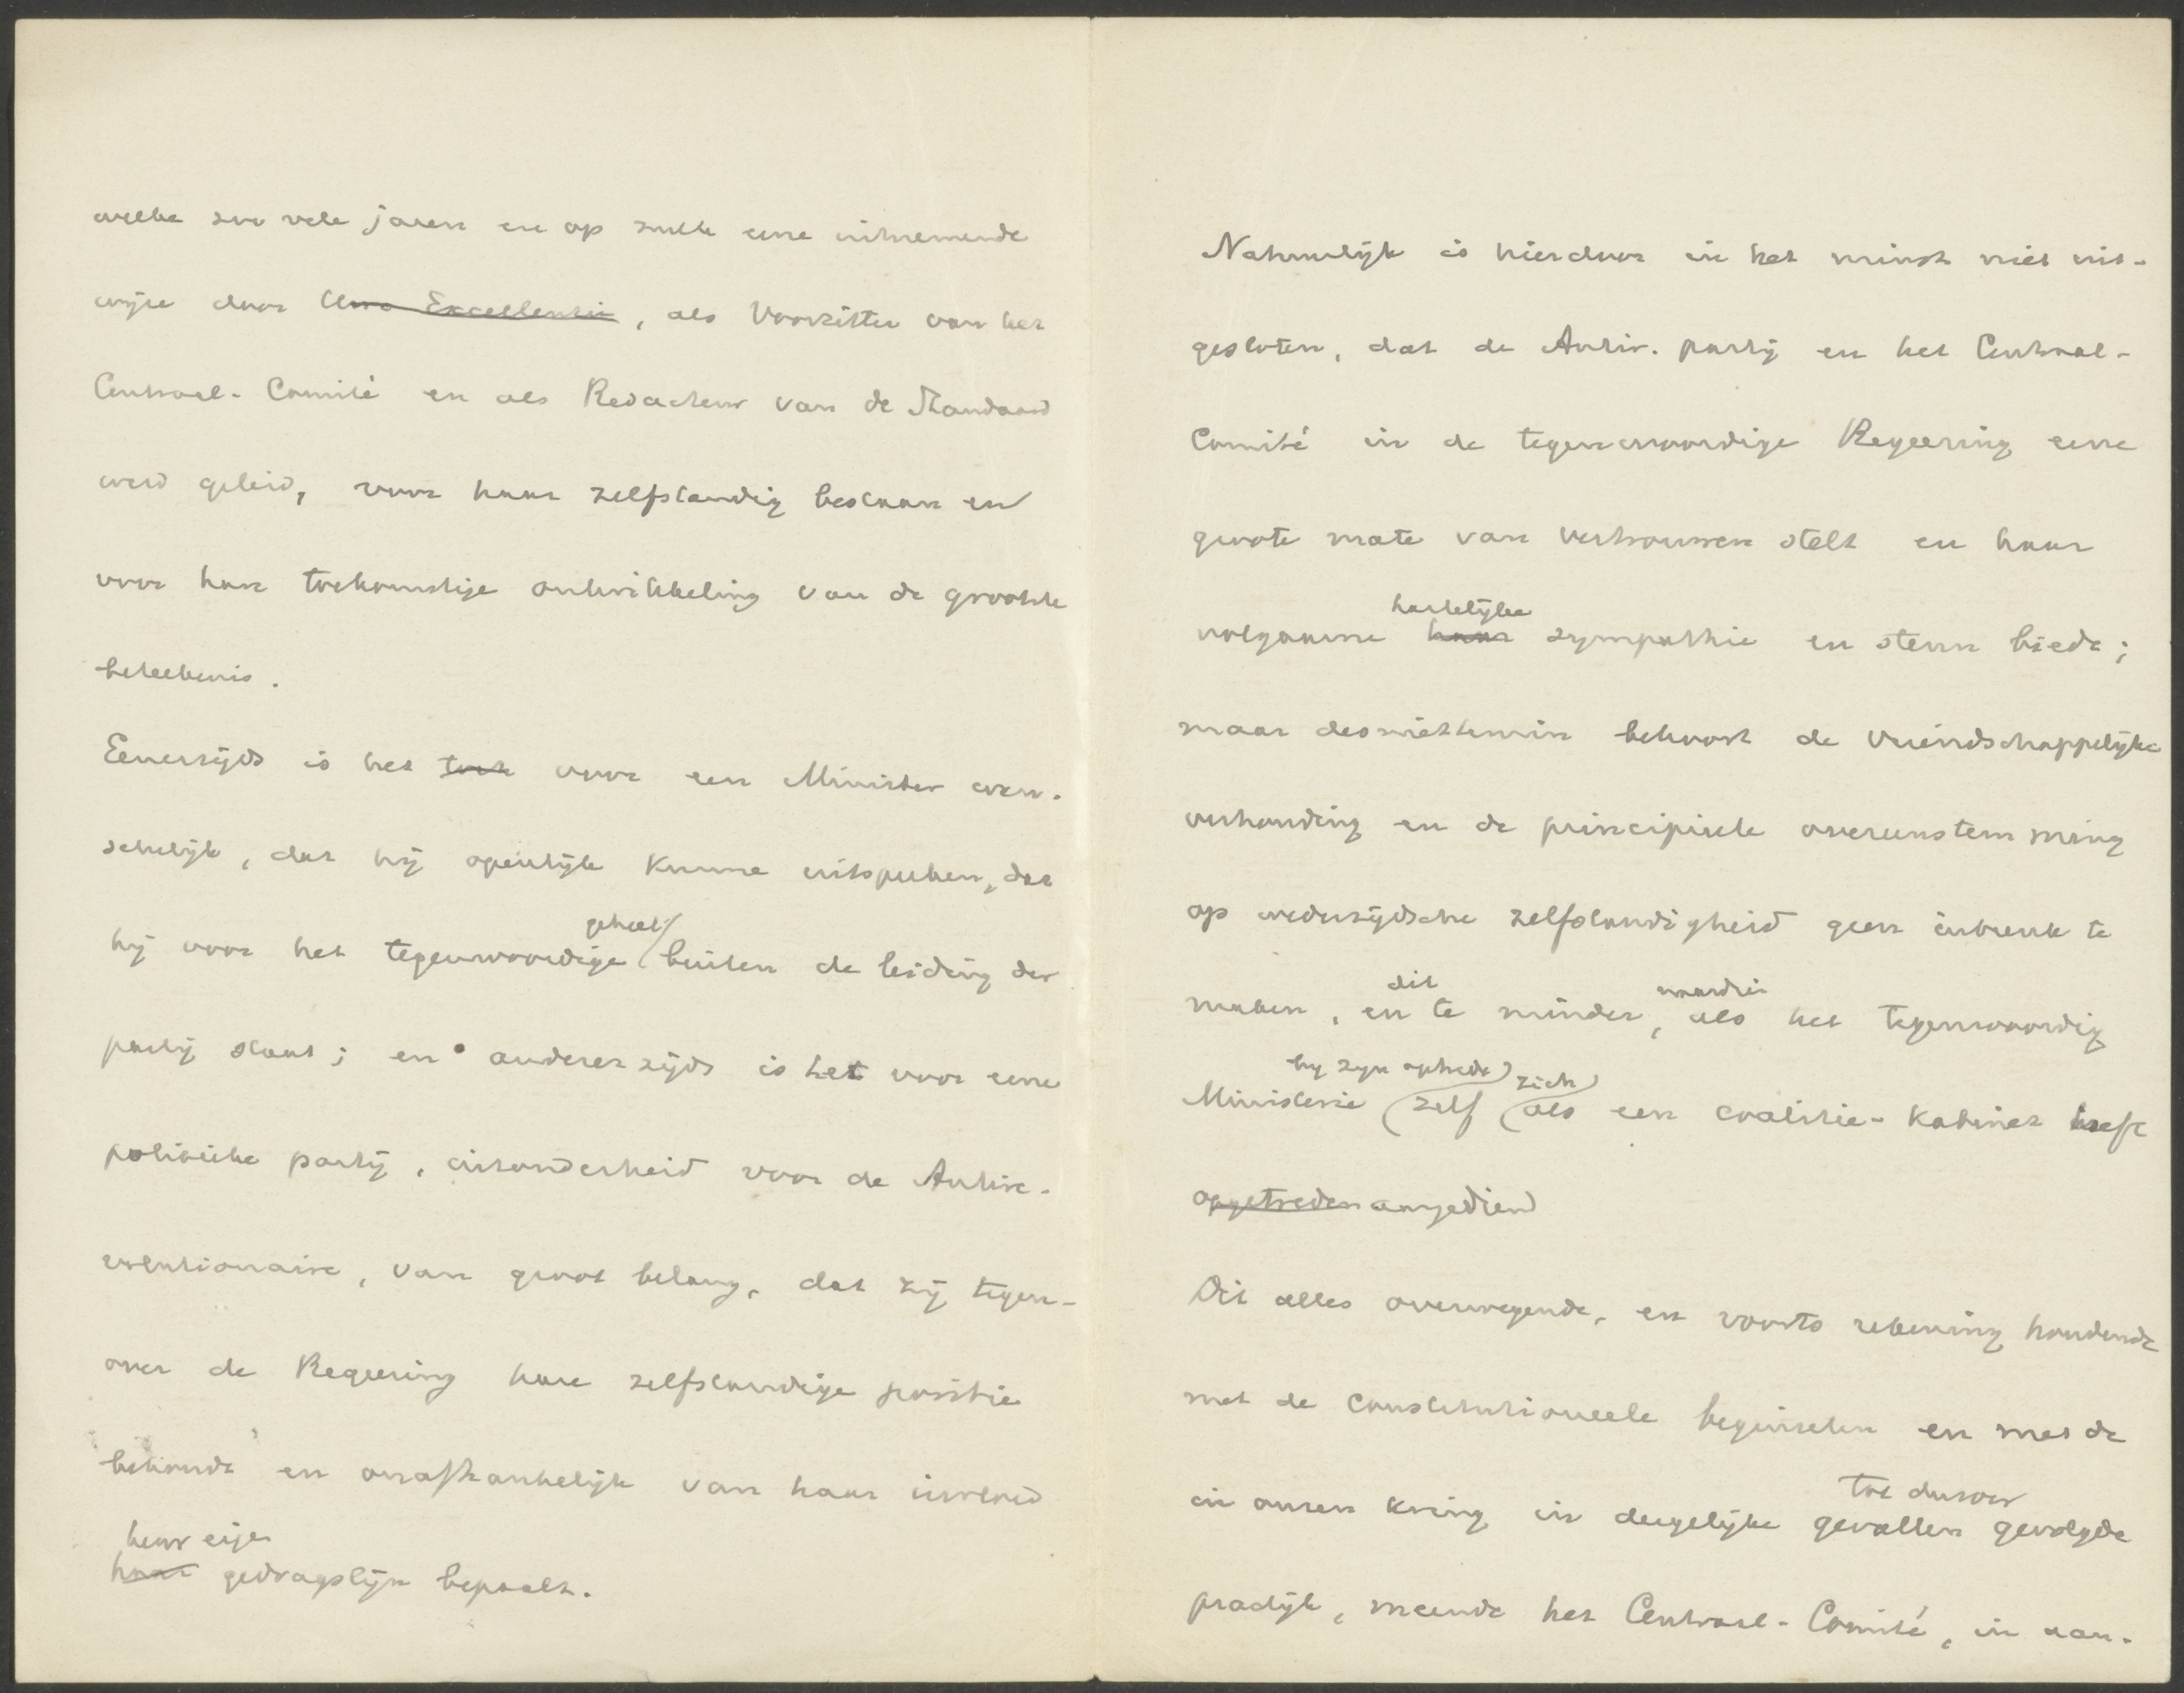 welke zoo vele jaren en op zulk eene uitnemende
wijze door Uwe Excellentie, als Voorzitter van het
Centraal-Comité en als Redacteur van de Standaard
werd geleid, voor haar zelfstandig bestaan en
voor hare toekomstige ontwikkeling van de grootste
beteekenis.
Eenerzijds is het toch voor een Minister wen-
schelijk, dat hij openlijk kunne uitspreken, dat
geheel
hij voor het tegenwoordige buiten de leiding der
partij staat; en anderer zijds is het voor eene
politieke partij, inzonderheid voor de Antire-
volutionaire, van groot belang, dat zij tegen-
over de Regeering hare zelfstandige positie
behoude en onafhankelijk van haar invloed
heur eigen
haar gedragslijn bepaalt.
Natuurlijk is hierdoor in het minst niet uit-
gesloten, dat de Antir. partij en het Centraal-
Comité in de tegenwoordige Regeering eene
groote mate van vertrouwen stelt en haar
hartelijke
volgaarne haar sympathie en steun biedt;
maar desniettemin behoort de vriendschappelijke
verhouding en de principieele overeenstemming
op wederzijdsche zelfstandigheid geen inbreuk te
dit waardien
maken, en te minder, als het tegenwoordig
bij zijn optreden zich
Ministerie zelf als een coalitie-Kabinet heeft
opgetreden aangediend
Dit alles overwegende, en voorts rekening houdende
met de constitutioneele beginselen en met de
tot dusver
in onzen kring in dergelijke gevallen gevolgde
practijk, meende het Centraal-Comité, in aan-